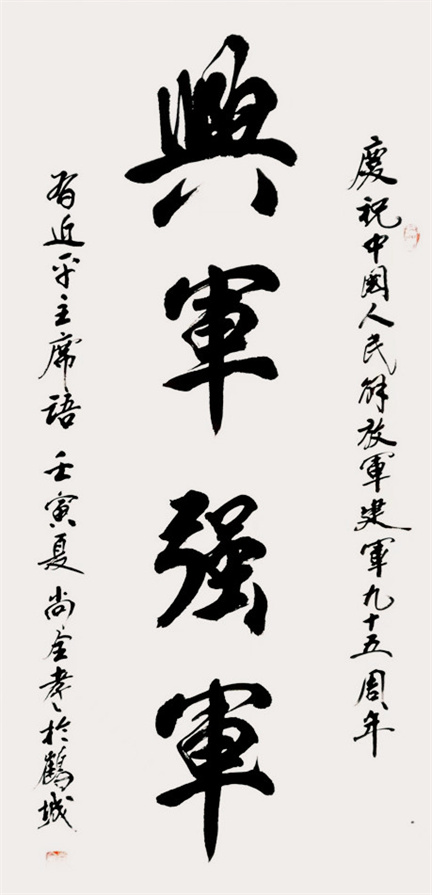 慶祝中國人民解放軍建軍九十五周年
興軍强軍
習近平主席語 壬寅夏 尚金孝於鶴城